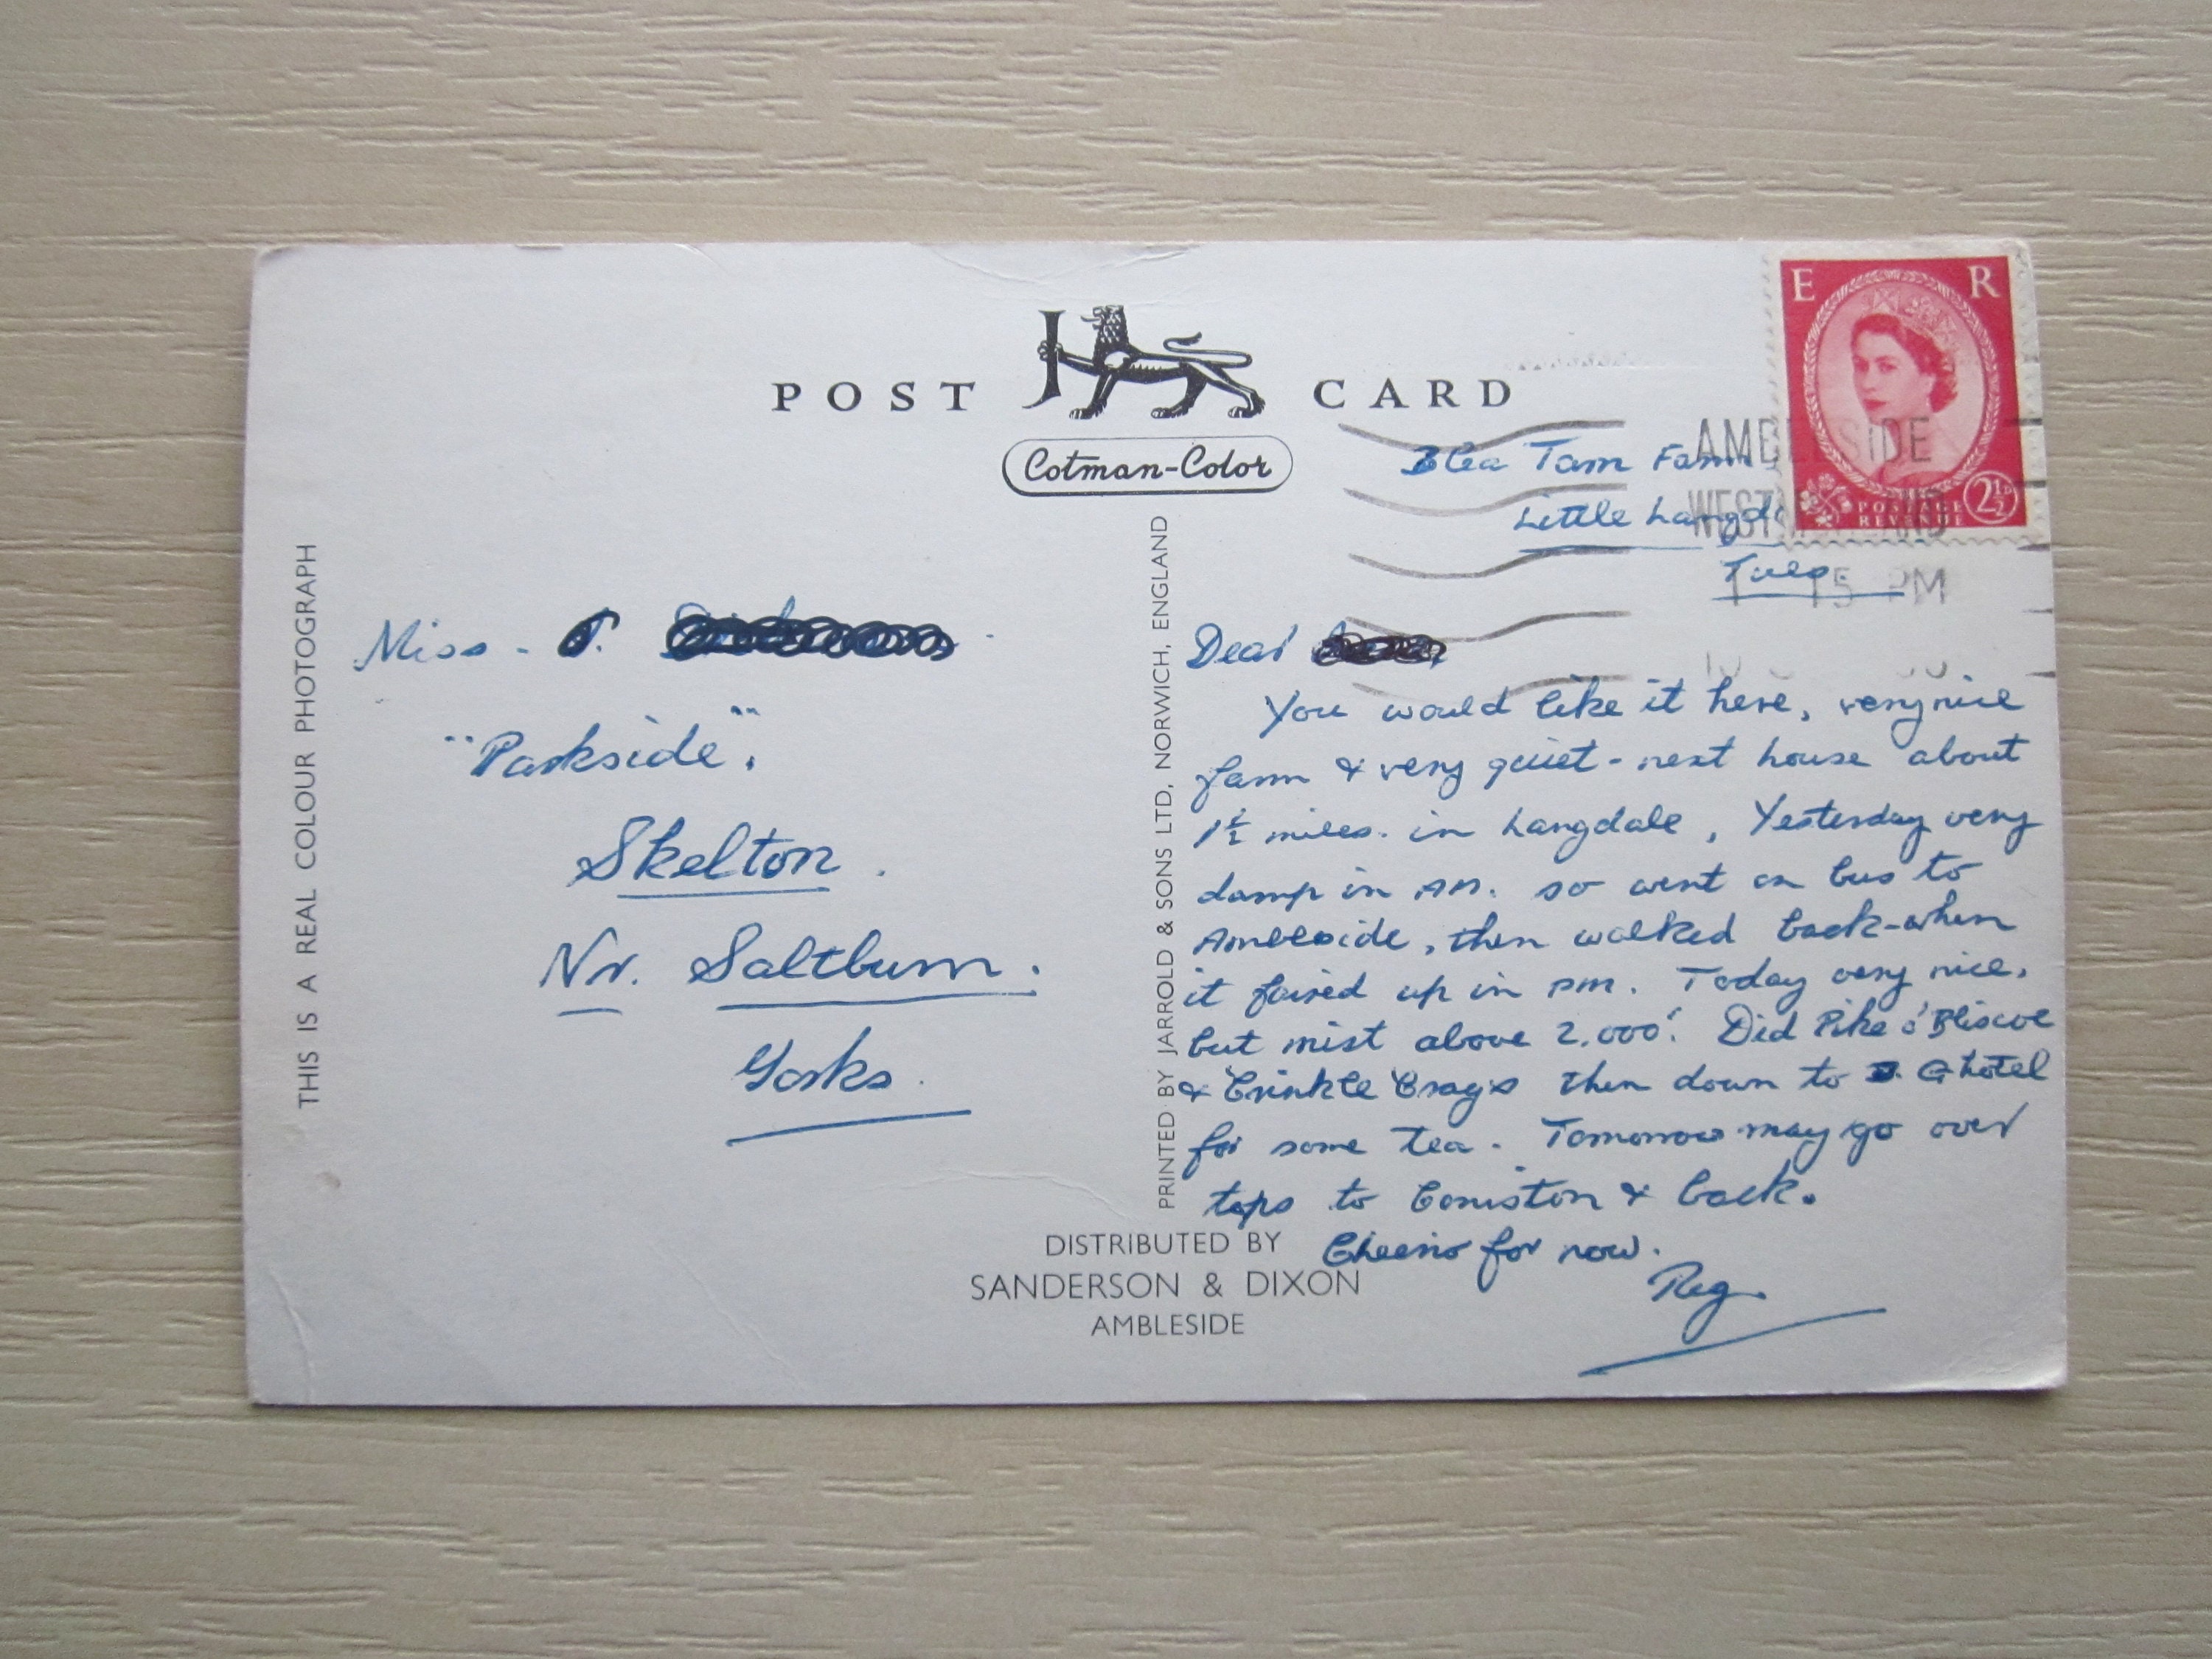 POST CARD
Cotman-Color
THIS IS A REAL COLOUR PHOTOGRAPH
PRINTED BY JARROLD & SONS LTD, NORWICH, ENGLAND
E R
POSTAGE
REVENUE
2½D
AMBLESIDE
WESTMORLAND
15 PM
Miss.
"Parkside",
Skelton.
Nr. Saltburn.
Yorks.
Blea Tarn Farm
Little Langd
Tues.
Dear
You would like it here, very nice
farm & very quiet - next house about
1½ miles. in Langdale, Yesterday very
damp in AM. so went on bus to
Ambleside, then walked back - when
it faired up in PM. Today very nice,
but mist above 2,000'. Did Pike o' Bliscoe
& Crinkle Crags then down to D. G hotel
for some tea. Tomorrow may go over
tops to Coniston & back.
Cheerio for now.
Reg.
DISTRIBUTED BY
SANDERSON & DIXON
AMBLESIDE